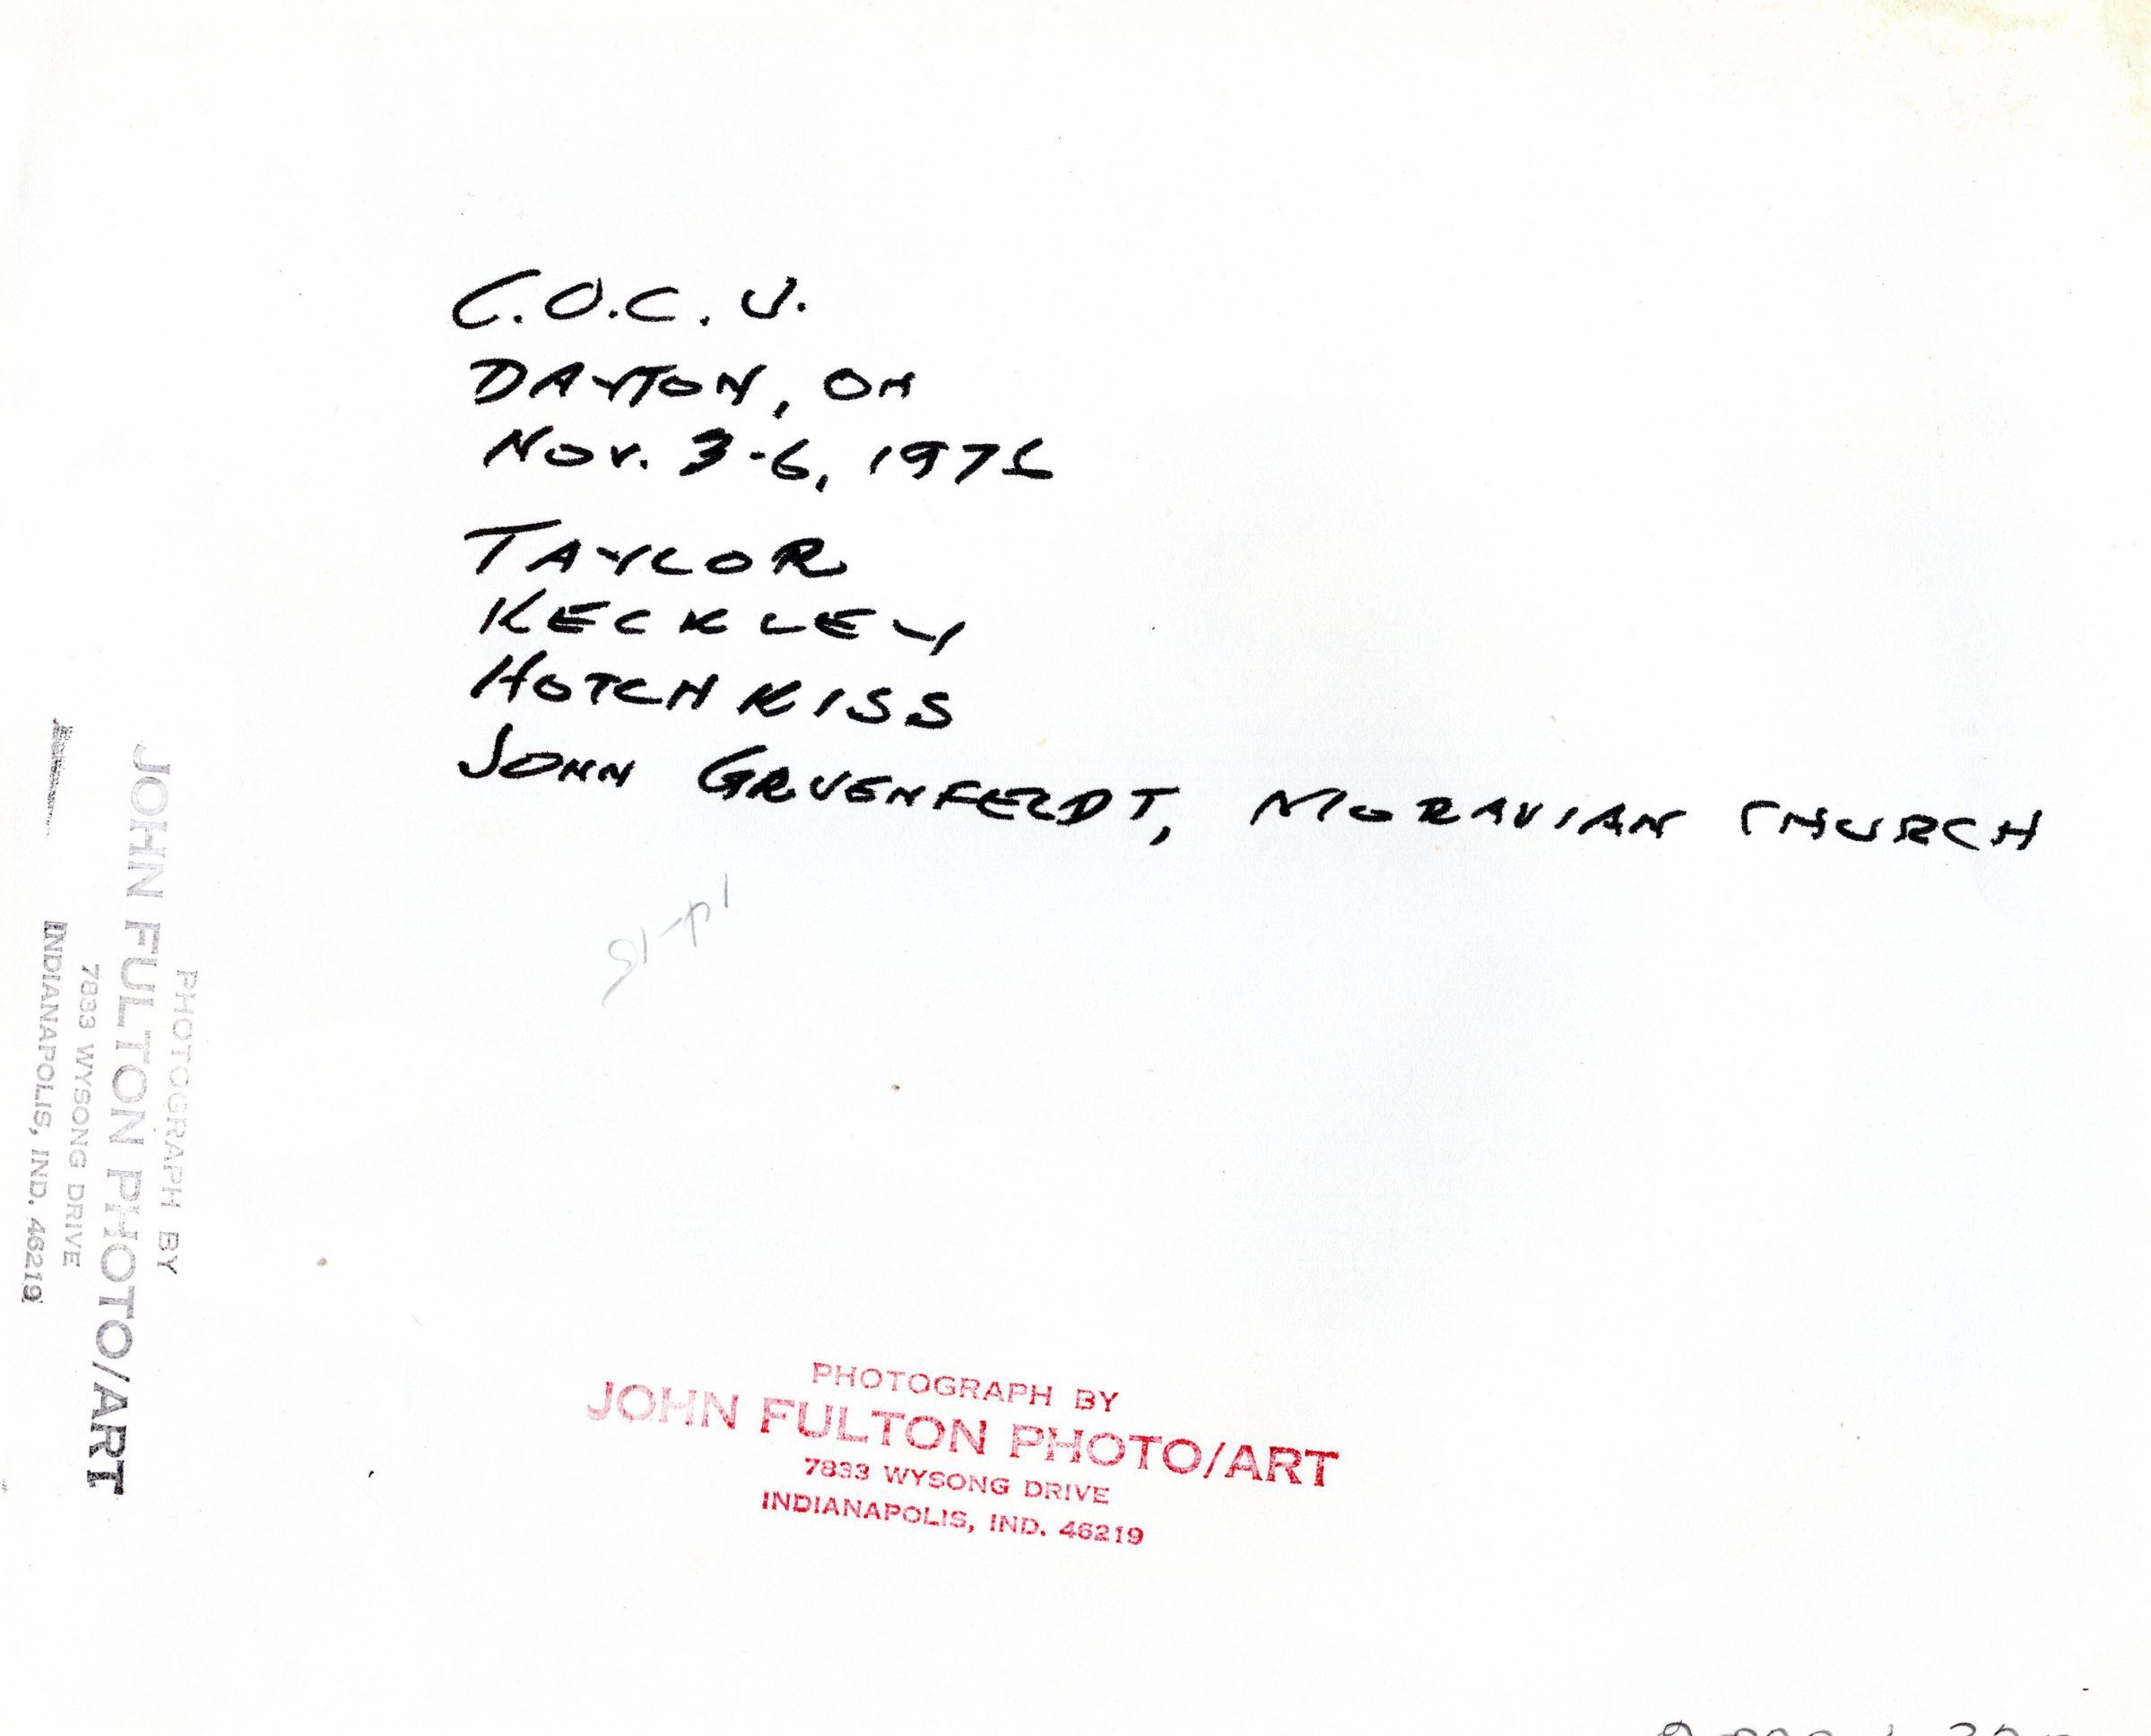 C.O.C.U.
DAYTON, OH
NOV. 3-6, 1975
TAYLOR
KECKLEY
HOTCHKISS
JOHN GRUENFELDT, MORAVIAN CHURCH
PHOTOGRAPH BY
JOHN FULTON PHOTO/ART
7833 WYSONG DRIVE
INDIANAPOLIS, IND. 46219
PHOTOGRAPH BY
JOHN FULTON PHOTO/ART
7833 WYSONG DRIVE
INDIANAPOLIS, IND. 46219